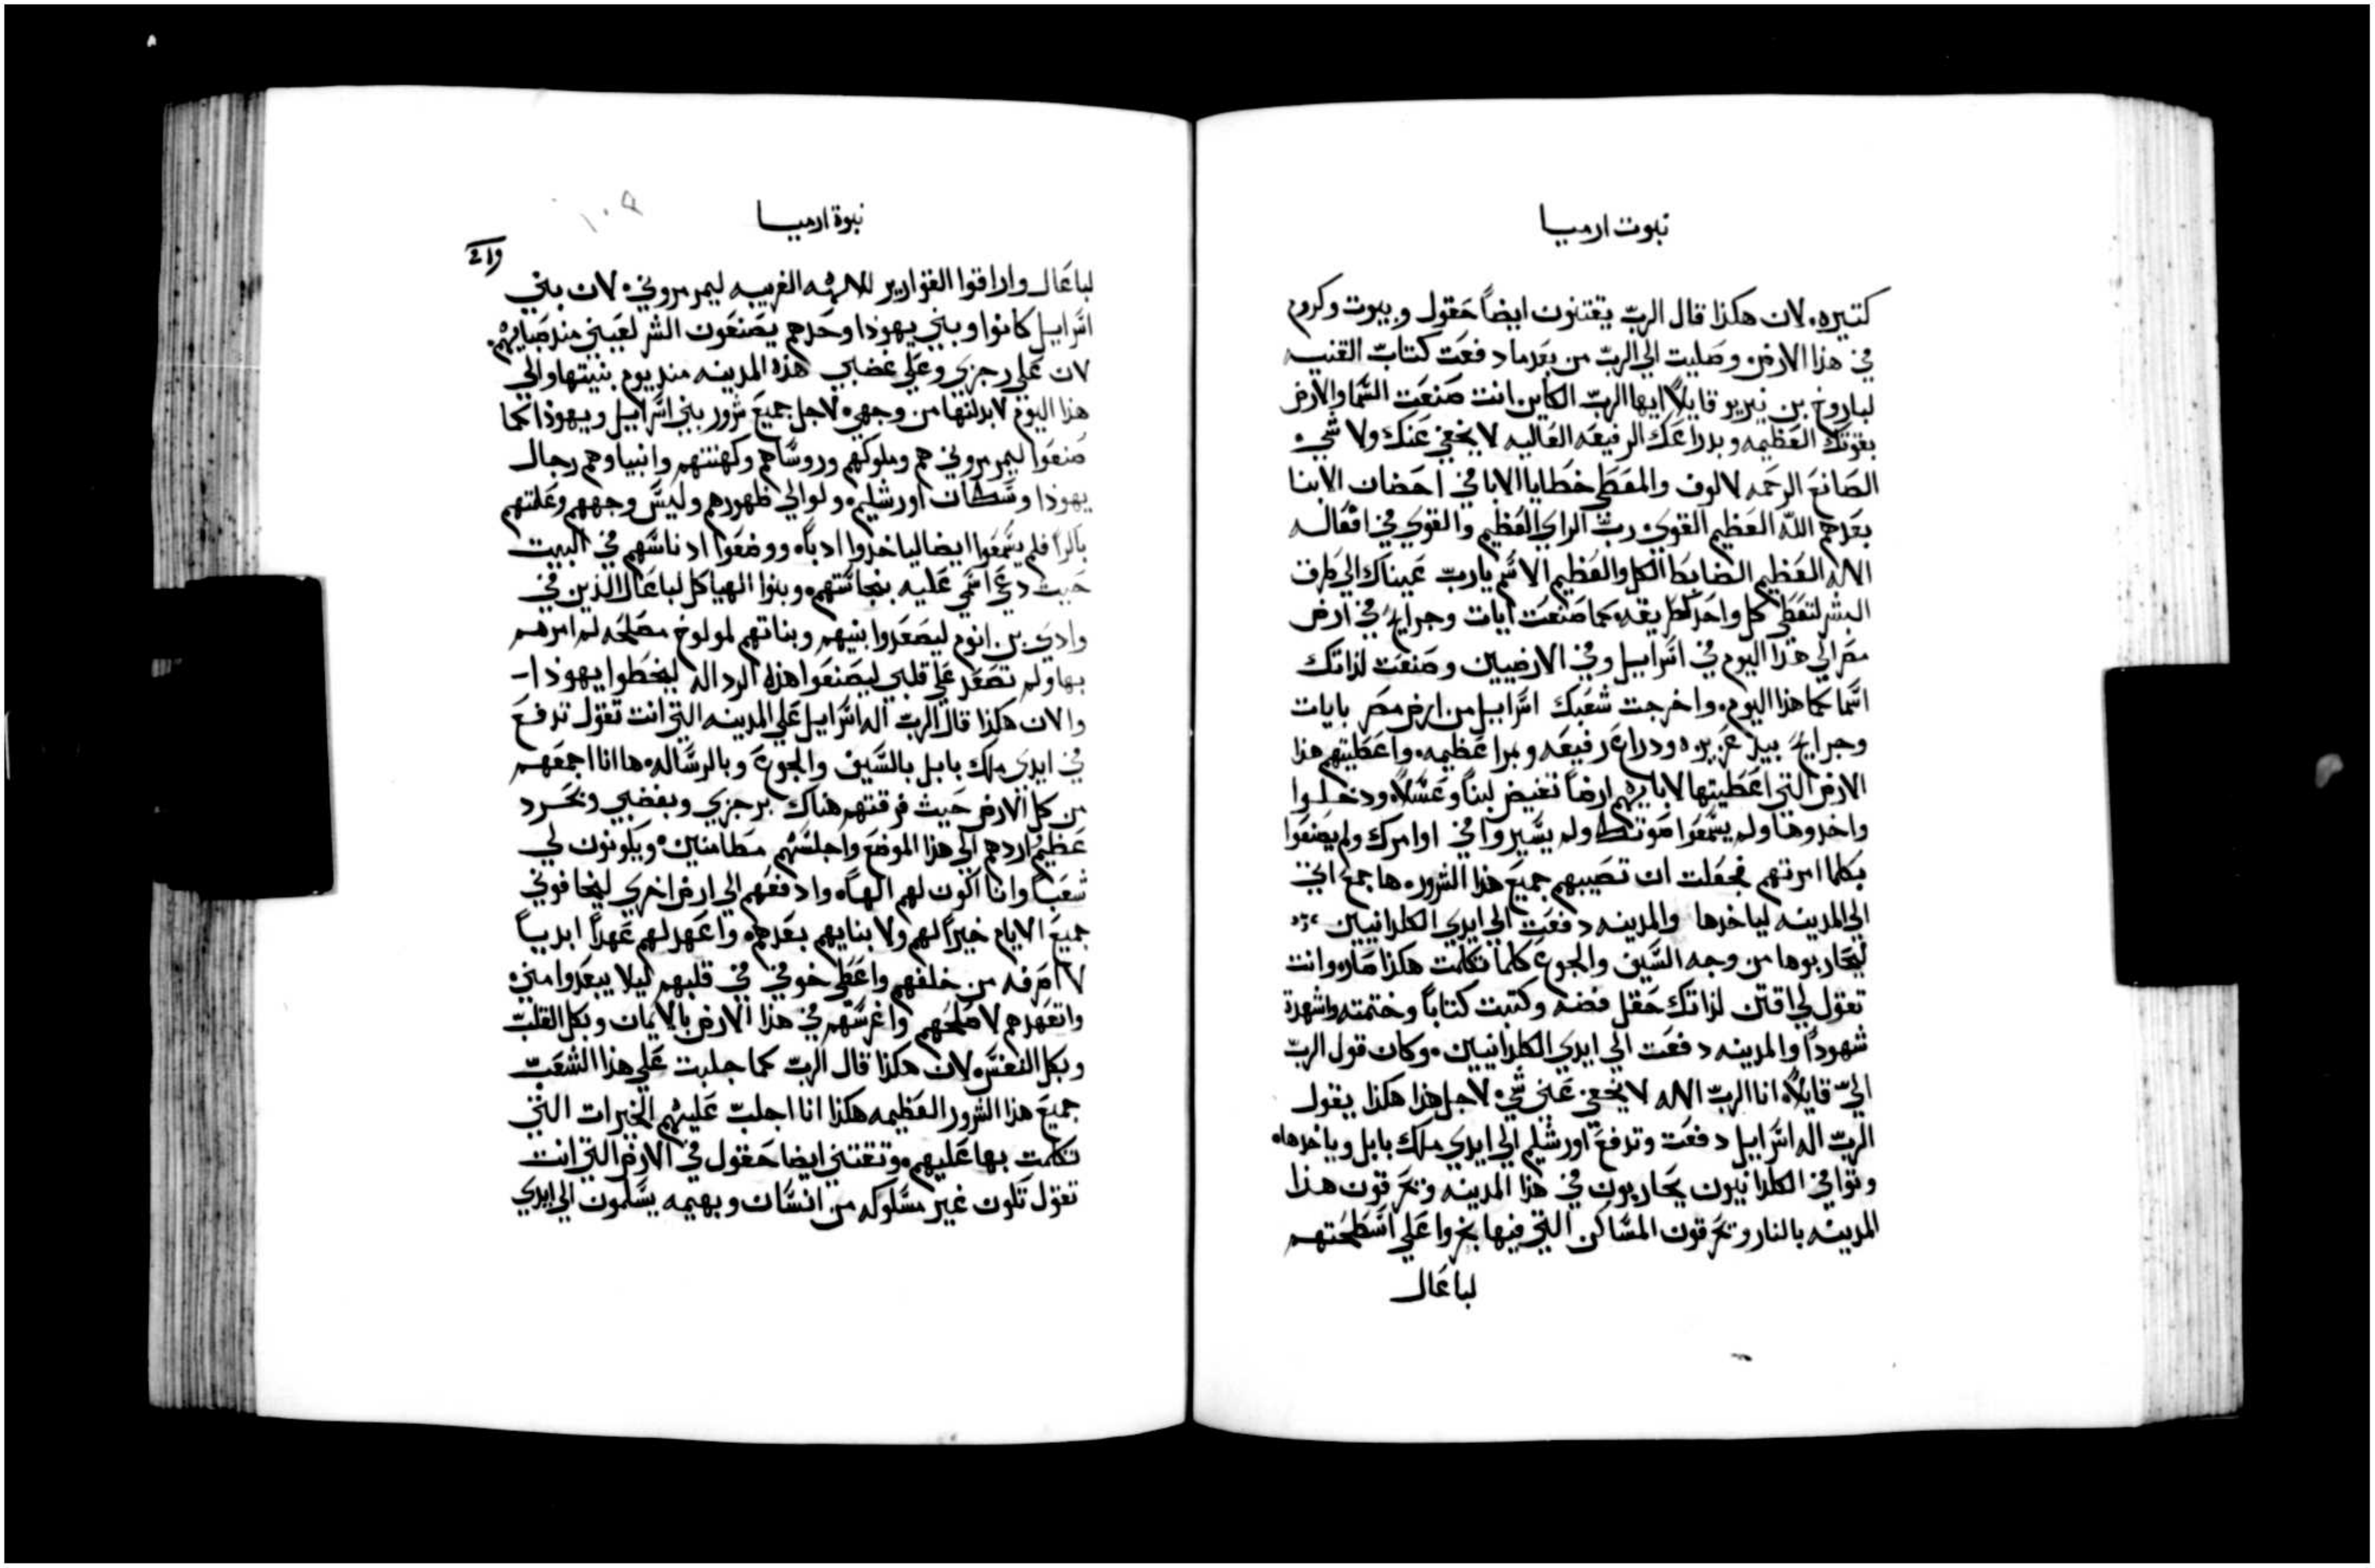 نبوت ارميا
كتيره. لان هكذا قال الرب يقتنون ايضاً حقول وبيوت وكروم
في هذا الارض وصليت الي الرب من بعدما دفعت كتاب القنيه
لباروخ بن نيريو قايلاً ايها الرب الكاين انت صنعت السما والارض
بقوتك العظيمه وبدراعك الرفيعه العاليه لا يخفي عنك ولا شي
الصانع الرحمه لالوف والمعطي خطايا الابا في احضان الابنا
بعدهم الله العظيم القوي رب الراي العظيم والقوي في افعاله
الاله العظيم الضابط الكل والعظيم الاسم يارب عيناك الي طرق
البشر لتعطي كل واحد لطريقه كما صنعت ايات وجرايح في ارض
مصر الي هذا اليوم في اسراييل وفي الارضيين وصنعت لذاتك
اسما كما هذا اليوم. واخرجت شعبك اسراييل من ارض مصر بايات
وجرايح بيد عزيزه ودراع رفيعه وبمرا عظيمه. واعطيتهم هذا
الارض التي اعطيتها لابايهم ارضاً تفيض لبناً وعسلاً. ودخلوا
واخدوها ولم يسمعوا صوتك ولم يسيروا في اوامرك ولم يصنعوا
بكلما امرتهم فجعلت ان تصيبهم جميع هذا الشرور. ها جمع اتي
الي المدينه لياخدها والمدينه دفعت الي ايدي الكلدانيين
ليحاربوها من وجه السيف والجوع كلما تكلمت هكذا صار. وانت
تقول لي اقتن لذاتك حقل فضه وكتبت كتاباً وختمته واشهدة
شهوداً والمدينه دفعت الي ايدي الكلدانيين. وكان قول الرب
اليّ قايلاً. انا الرب الاله لا يخفي عني شي لاجل هذا هكذا يقول
الرب اله اسراييل دفعت وتدفع اورشليم الي ايدي ملك بابل وياخدها.
وتوافي الكلدانيون يحاربون في هذا المدينه وتحرقون هذا
المدينه بالنار وتحرقون المساكن التي فيها بخروا علي اسطحتهم
لباعال
نبوة ارميا
١٠٩
لباعال واراقوا القوارير للالهه الغريبه ليمرمروني. لان بني
اسراييل كانوا وبني يهوذا وحدهم يصنعون الشر لعيني مند صبايهم.
لان علي رجزي وعلي غضبي هذه المدينه مند يوم بنيتها والي
هذا اليوم لابدلتها من وجهي. لاجل جميع شرور بني اسراييل ويهوذا كما
صنعوا ليمرمروني هم وملوكهم وروساهم وكهنتهم وانبياوهم رجال
يهوذا وسكان اورشليم. ولوا الي ظهورهم وليس وجههم وعلمتهم
باكراً فلم يسمعوا ايضا لياخدوا ادباً. ووضعوا ادناسهم في البيت
حيت دعي اسمي عليه بنجاستهم. وبنوا الهياكل لباعال الذين في
وادي بن انوم ليصعدوا بنيهم وبناتهم لمولوخ مصلحه لم امرهم
بها ولم تصعد علي قلبي ليصنعوا هذه الرداله ليخطوا يهوذا
والان هكذا قال الرب اله اسراييل علي المدينه التي انت تقول تدفع
في ايدي ملك بابل بالسيف والجوع وبالرساله. ها انا اجمعهم
من كل الارض حيث فرقتهم هناك برجزي وبغضبي وبحرد
عظيم اردهم الي هذا الموضع واجلسهم مطامنين. ويكونون لي
شعباً وانا اكون لهم الهاً. وادفعهم الي ارض اخري ليخافوني
جميع الايام خيراً لهم ولابنايهم بعدهم. واعهد لهم عهداً ابدياً
لا اصرفه من خلفهم واعطي خوفي في قلبهم ليلا يبعدوا مني
واتعهدهم لاصلحهم واغرسهم في هذا الارض بالايمان وبكل القلب
وبكل النفس. لان هكذا قال الرب كما جلبت علي هذا الشعب
جميع هذا الشرور العظيمه هكذا انا اجلب عليهم الخيرات التي
تكلمت بها عليهم. وتقتني ايضا حقول في الارض التي انت
تقول تكون غير مسلوكه من انسان وبهيمه يسلمون الي ايدي